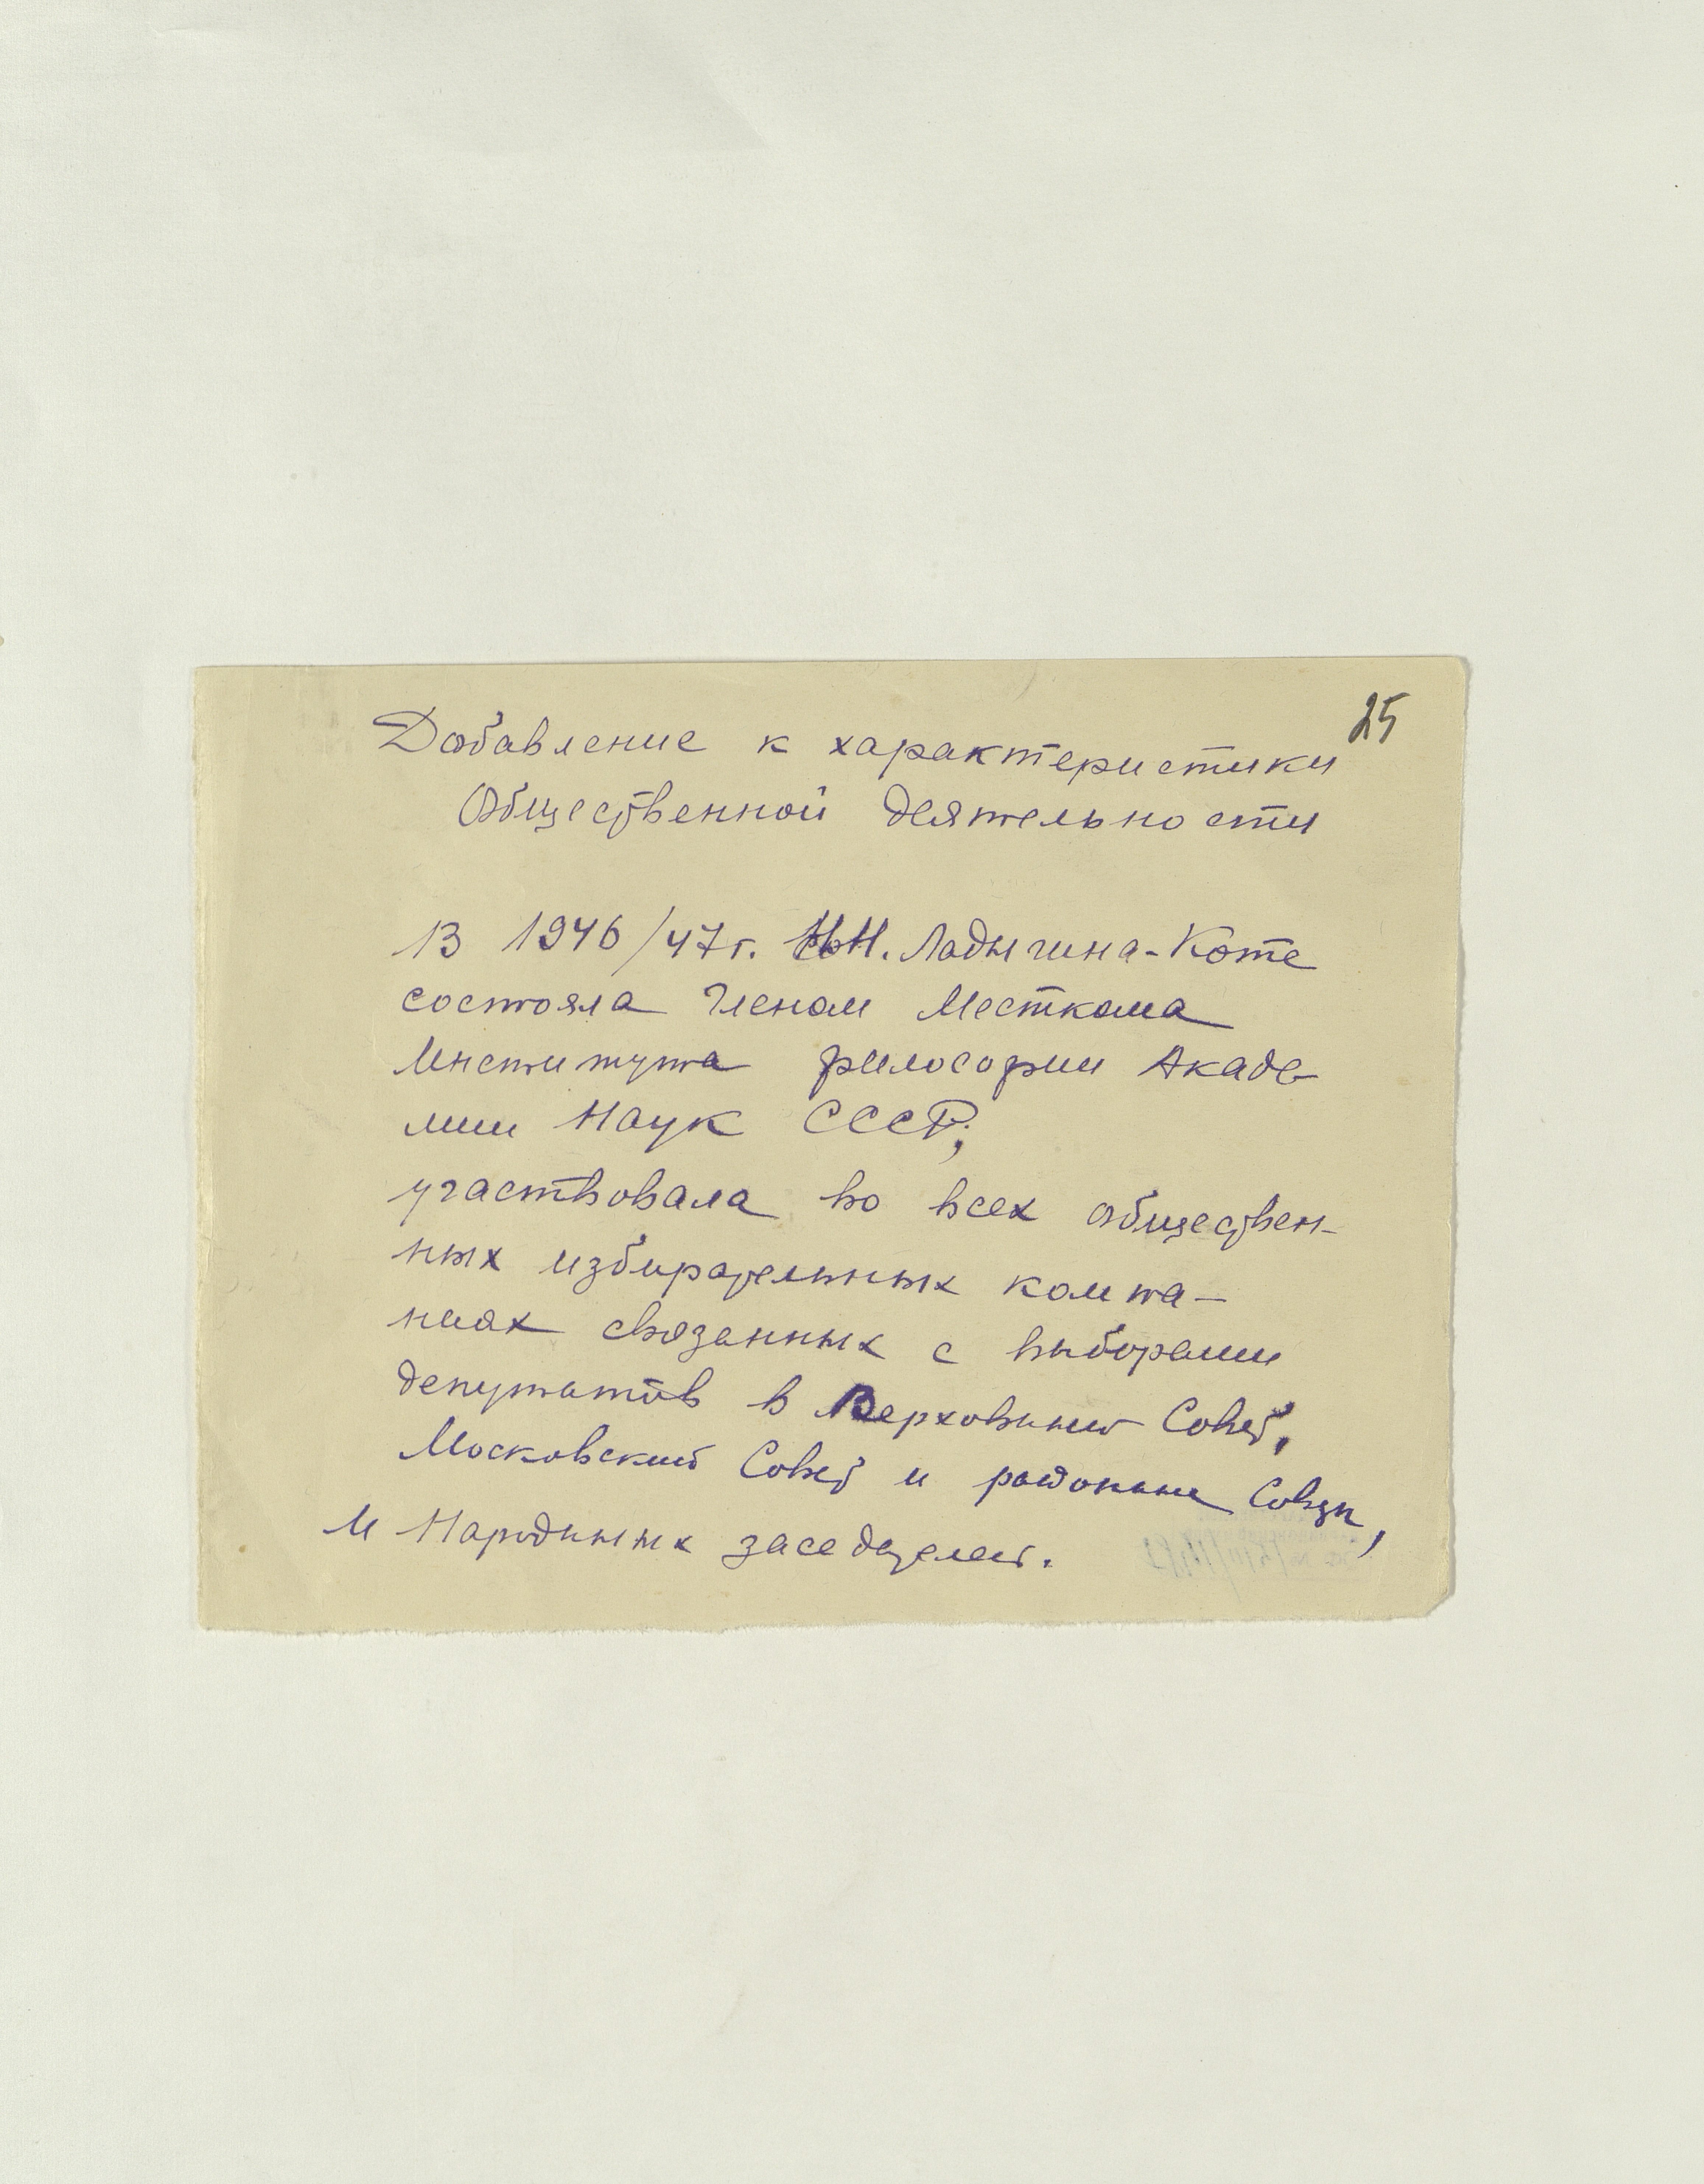 25
Добавление к характеристики
Общественной деятельности
В 1946/47г. Н.Н. Ладыгина-Коте
состояла Членом Месткома
Института философии Акаде-
мии Наук СССР,
участвовала во всех обществен-
ных избирательных компа-
ниях связанных с выборами
депутатов в Верховный Совет,
Московский Совет и районные Советы,
и Народных заседателей.